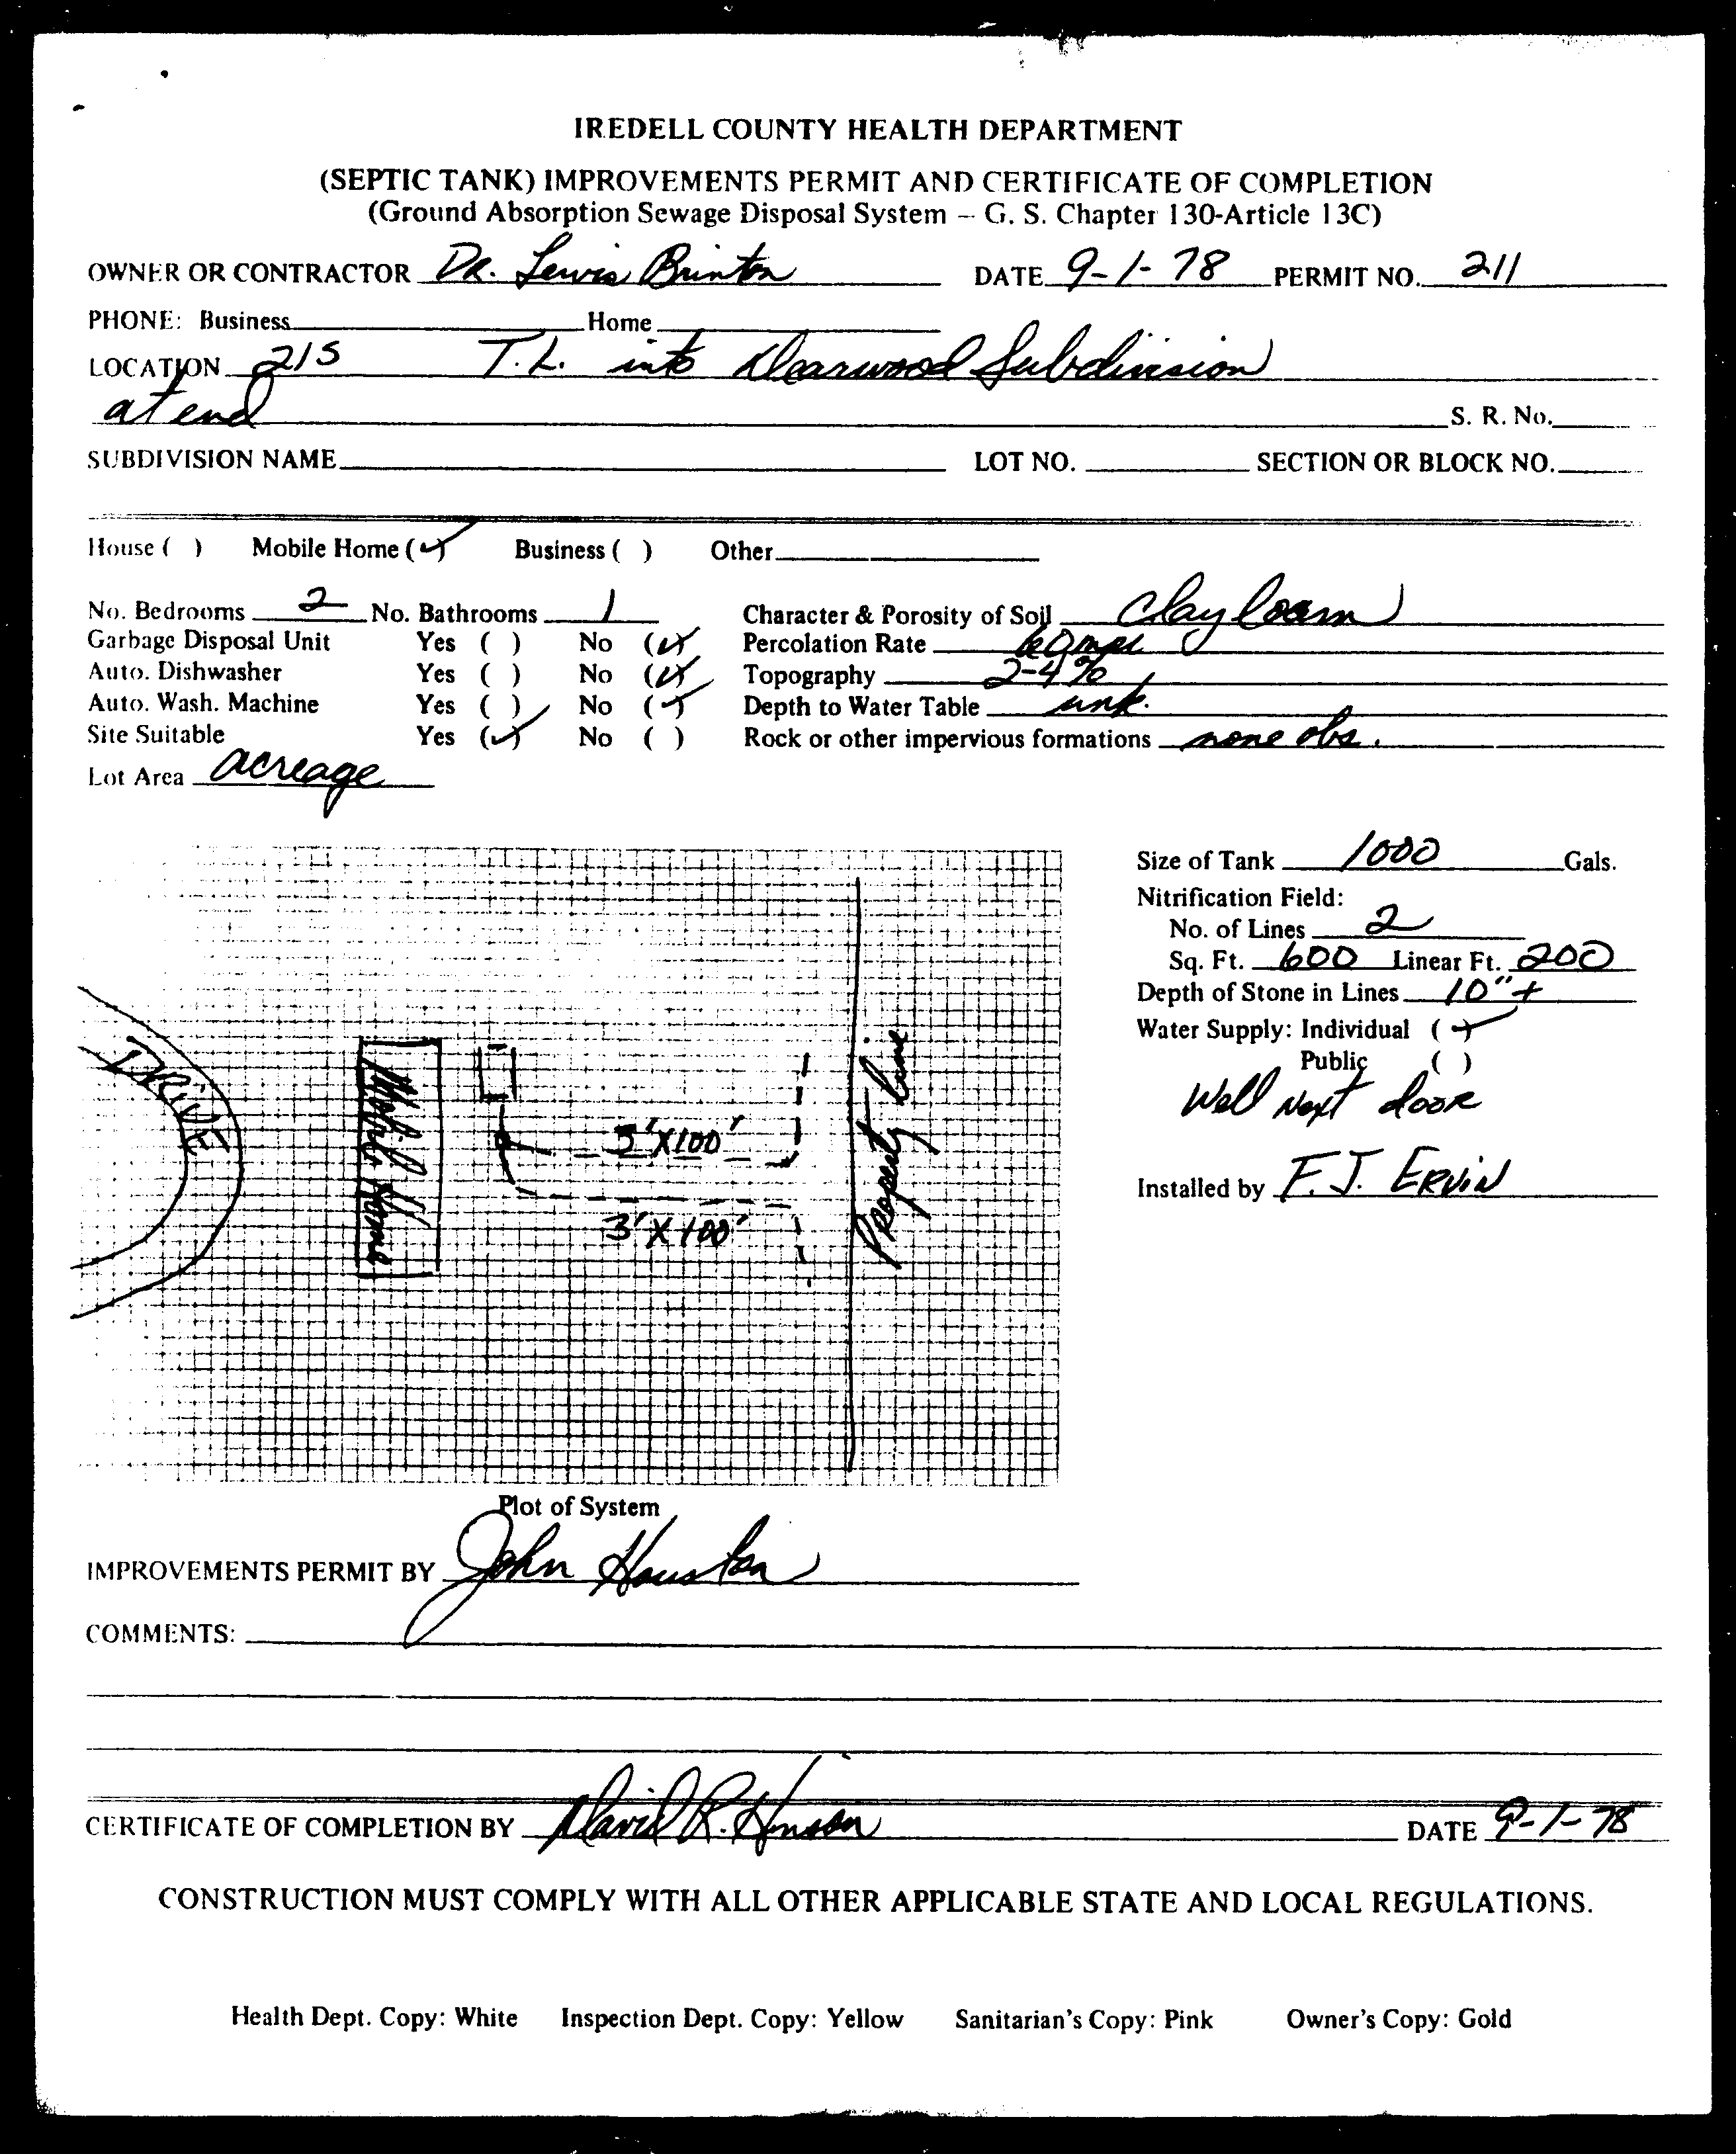 IREDELL COUNTY HEALTH DEPARTMENT
(SEPTIC TANK) IMPROVEMENTS PERMIT AND CERTIFICATE OF COMPLETION
(Ground Absorption Sewage Disposal System – G. S. Chapter 130-Article 13C)
OWNER OR CONTRACTOR Dr. Lewis Brinton DATE 9-1-78 PERMIT NO. 211
PHONE: Business Home
LOCATION 21S T.L. into Subdivision
at end S. R. No.
SUBDIVISION NAME LOT NO. SECTION OR BLOCK NO.
House ( ) Mobile Home (✓) Business ( ) Other
No. Bedrooms 2 No. Bathrooms 1 Character & Porosity of Soil Clay loam
Garbage Disposal Unit Yes ( ) No (✓) Percolation Rate 60 mpi
Auto. Dishwasher Yes ( ) No (✓) Topography 2-4%
Auto. Wash. Machine Yes ( ) No (✓) Depth to Water Table unk.
Site Suitable Yes (✓) No ( ) Rock or other impervious formations none obs.
Lot Area acreage
Size of Tank 1000 Gals.
Nitrification Field:
No. of Lines 2
Sq. Ft. 600 Linear Ft. 200
Depth of Stone in Lines 10"+
Water Supply: Individual (✓)
Public ( )
Well Next door
Installed by F.J. ERVIN
DRIVE
Mobile Home
3'X100'
3'X100'
Property line
Plot of System
IMPROVEMENTS PERMIT BY John Houston
COMMENTS:
CERTIFICATE OF COMPLETION BY David R. Hinson DATE 9-1-78
CONSTRUCTION MUST COMPLY WITH ALL OTHER APPLICABLE STATE AND LOCAL REGULATIONS.
Health Dept. Copy: White Inspection Dept. Copy: Yellow Sanitarian's Copy: Pink Owner's Copy: Gold